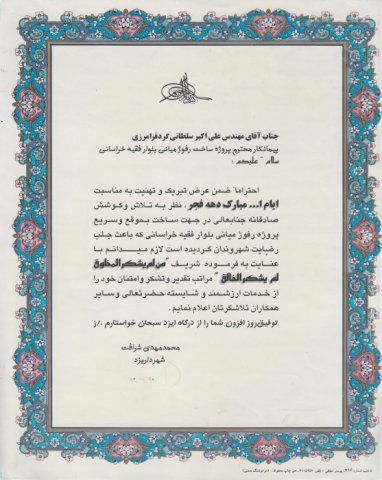 جناب آقای مهندس علی اکبر سلطانی گردفرامرزی
پیمانکار محترم پروژه ساخت رفوژ میانی بلوار فقیه خراسانی
سلام علیکم ؛
احتراماً ضمن عرض تبریک و تهنیت به مناسبت
ایام ا... مبارک دهه فجر ، نظر به تلاش وکوشش
صادقانه جنابعالی در جهت ساخت بموقع و سریع
پروژه رفوژ میانی بلوار فقیه خراسانی که باعث جلب
رضایت شهروندان گردیده است لازم میدانم با
عنایت به فرموده شریف "من لم یشکر المخلوق
لم یشکر الخالق" مراتب تقدیر وتشکر وامتنان خود را
از خدمات ارزشمند و شایسته حضرتعالی و سایر
همکاران تلاشگرتان اعلام نمایم .
توفیق روز افزون شما را از درگاه ایزد سبحان خواستارم ./ز
محمدمهدی شرافت
شهردار یزد